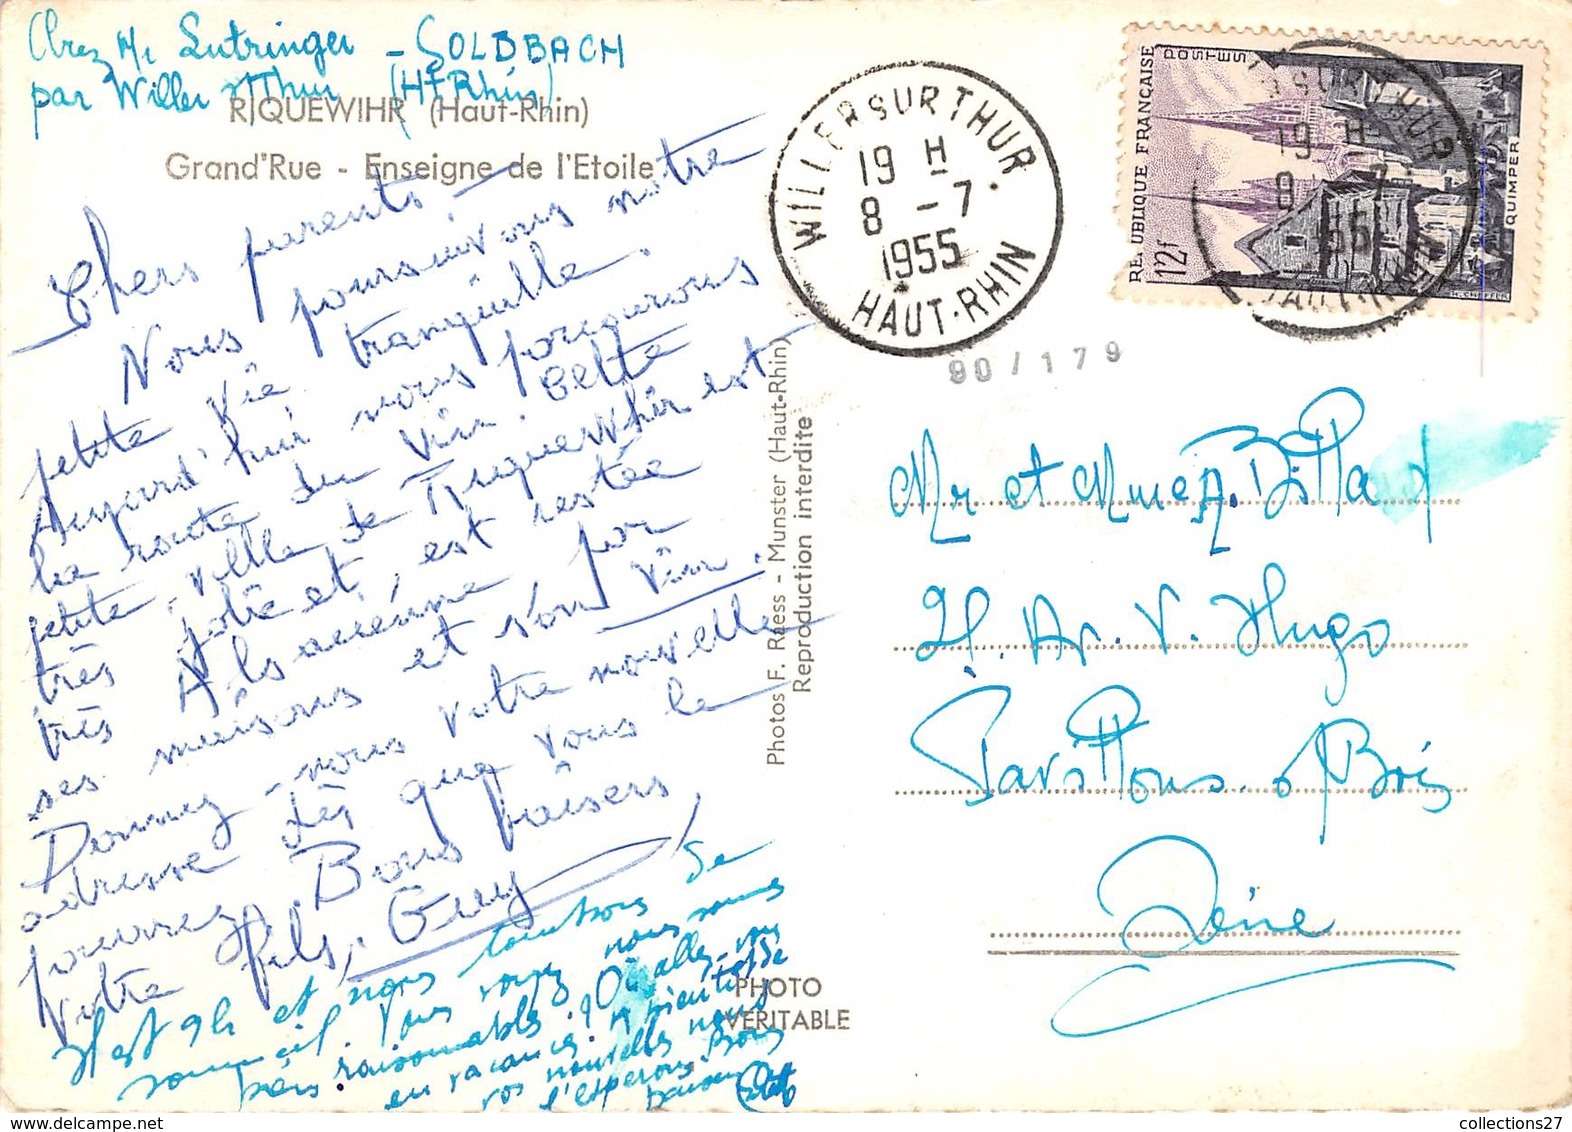 Chez Mr Lutringer - GOLDBACH
par Willer s/Thur (Ht Rhin)
RIQUEWIHR (Haut-Rhin)
Grand'Rue - Enseigne de l'Etoile
Chers parents -
Nous poursuivons notre
petite vie tranquille.
Aujourd'hui nous parcourons
la route du vin. Cette
petite ville de Riquewhir est
très jolie et, est restée
très Alsacienne par
ses maisons et son vin.
Donnez-nous votre nouvelle
adresse dès que vous le
pourrez. Bons baisers,
Votre fils, Guy
Il est 9h et nous tombons de
sommeil. Vous voyez nous sommes
très raisonnables. Où allez-vous
en vacances. bientôt de
vos nouvelles nous
l'espérons. Bons
baisers
PHOTO
VERITABLE
Photos F. Raess - Munster (Haut-Rhin)
Reproduction interdite
WILLER SUR THUR
19 H
8 - 7
1955
HAUT-RHIN
90/179
REPUBLIQUE FRANÇAISE
POSTES
12f
QUIMPER
SUR THUR
19 H
8 7
55
HAUT-RHIN
Mr et Mme A. Billard
21. Av. V. Hugo
Pavillons s/Bois
Seine
collections27